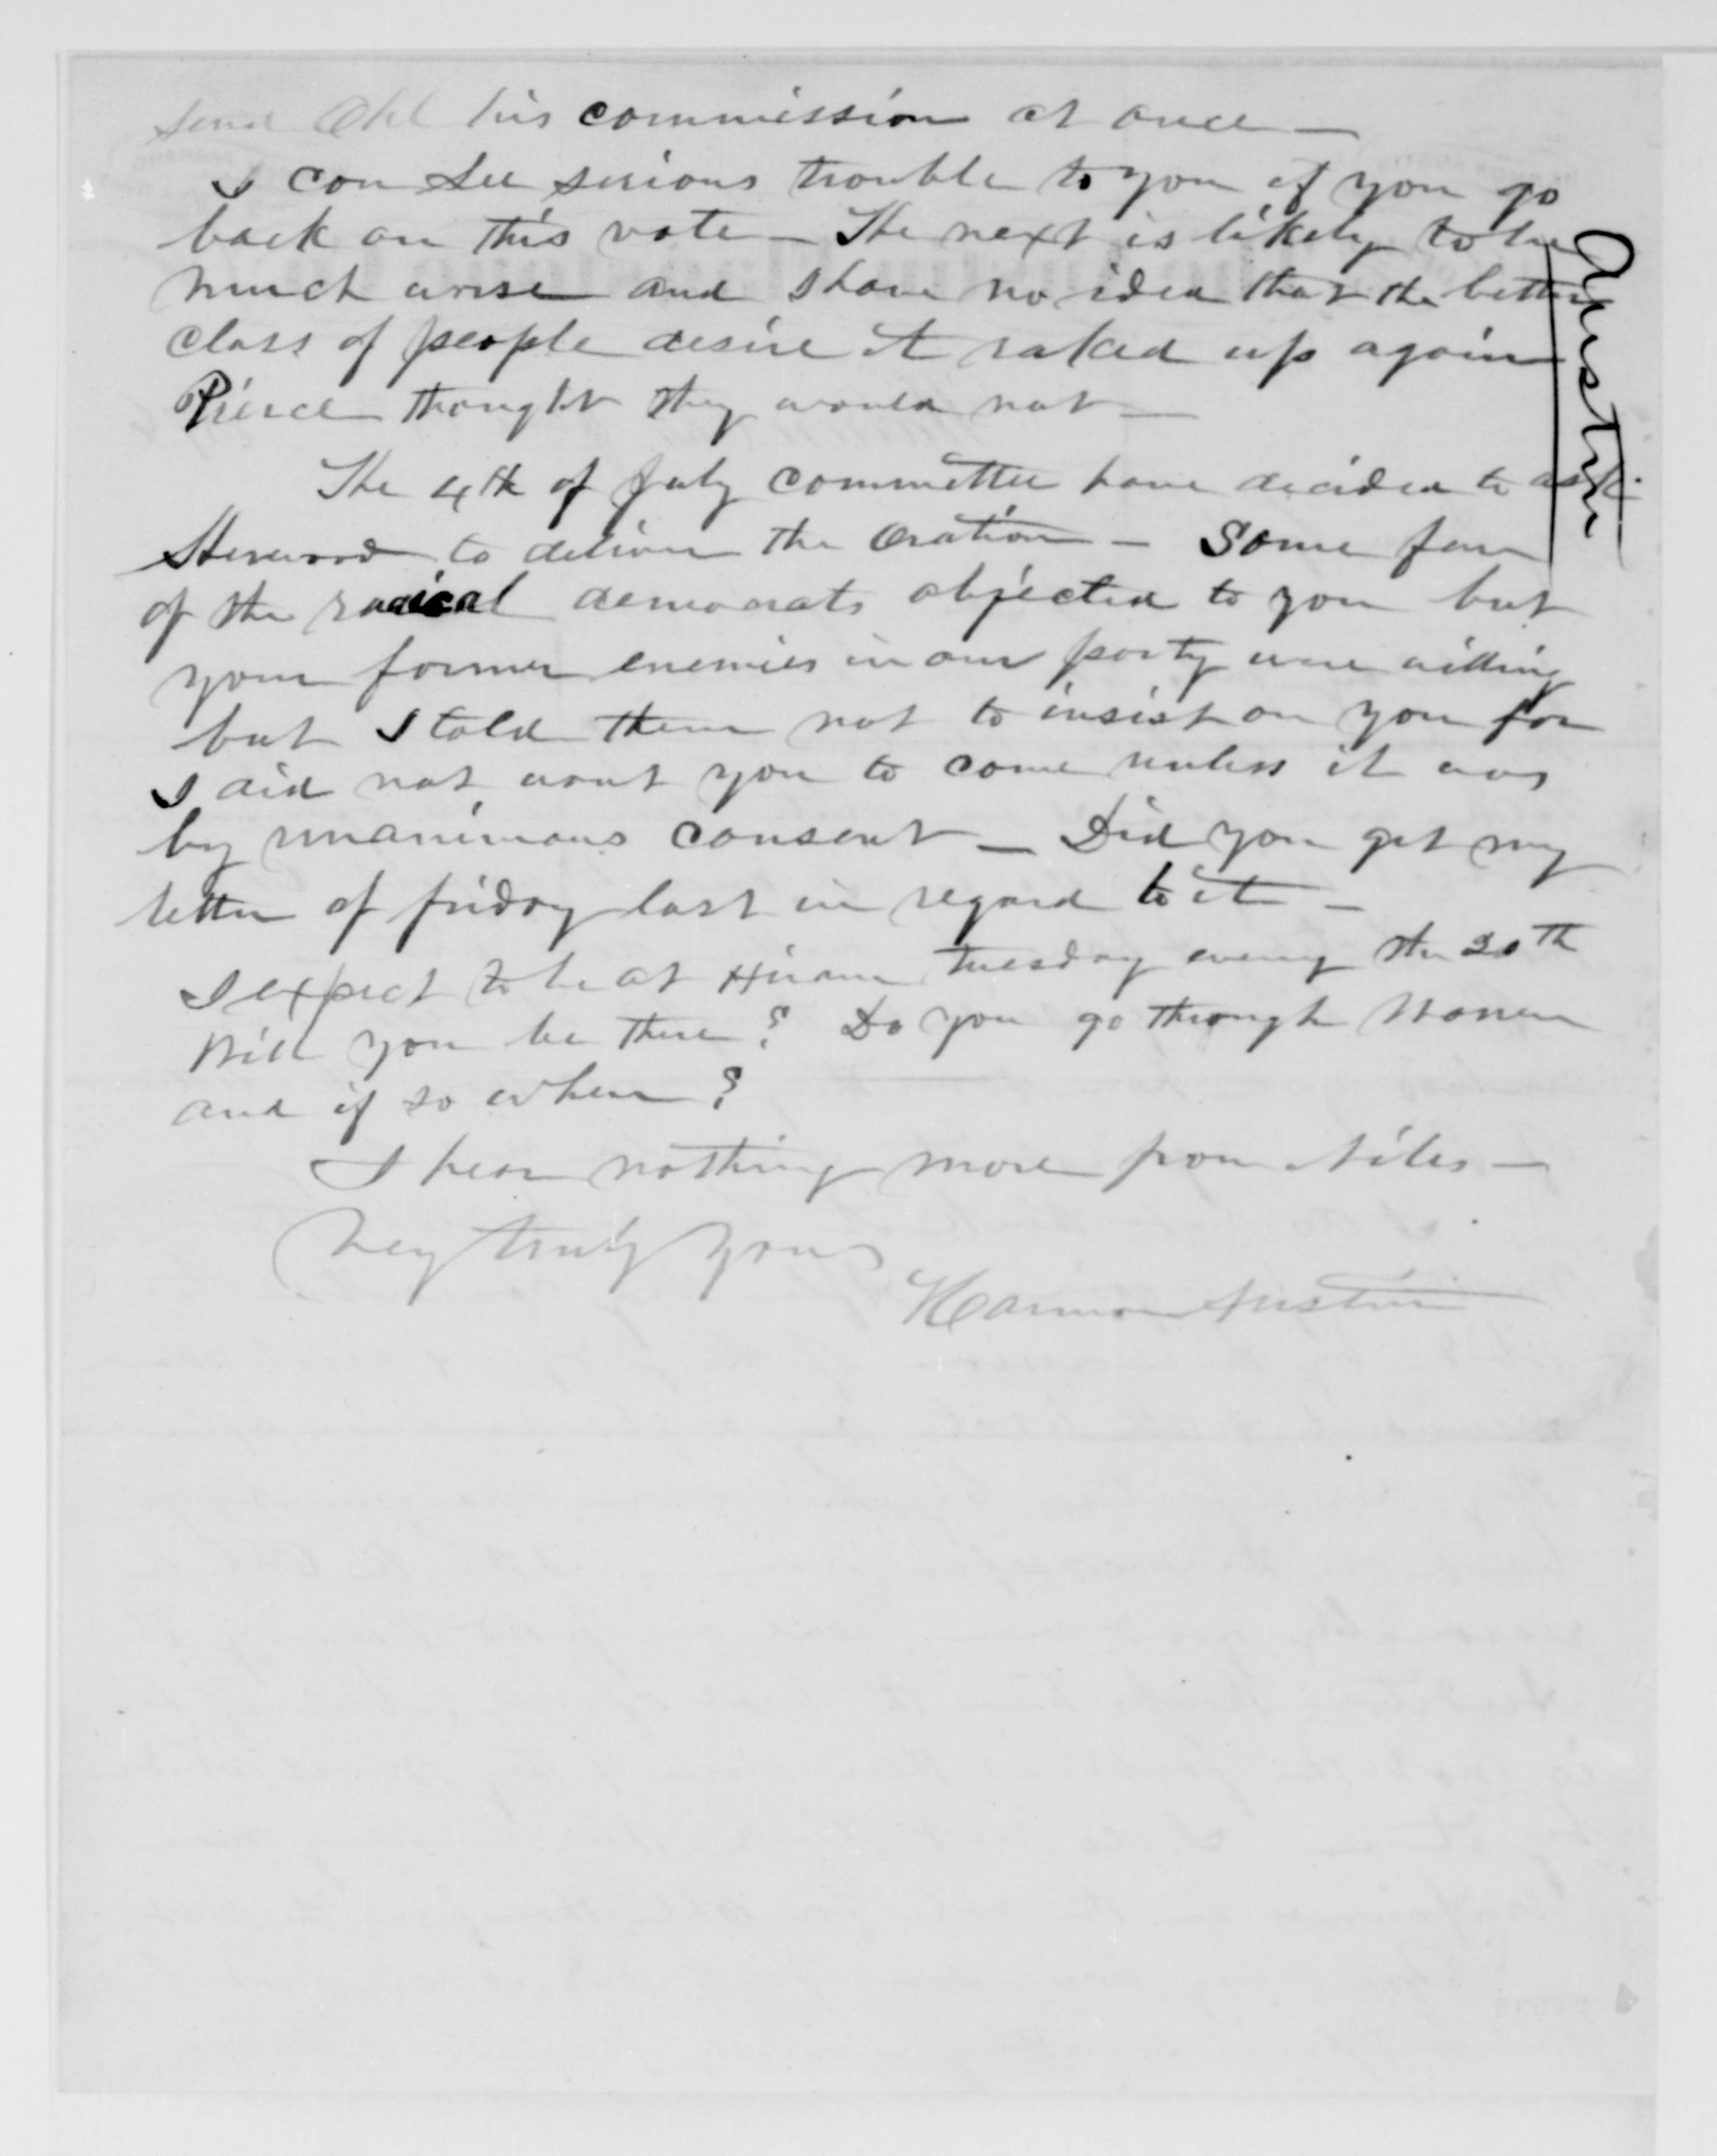 send Ohl his commission at once —
I can see serious trouble to you if you go
back on this vote — The next is likely to be
much worse and I have no idea that the better
class of people desire it raked up again
Pierce thought they would not —
The 4th of July committee have decided to ask
to deliver the Oration — Some few
of the radical democrats objected to you but
your former enemies in our party were willing
but I told them not to insist on you for
I did not want you to come unless it was
by unanimous consent — Did you get my
letter of friday last in regard to it —
I expect to be at Hiram Tuesday evening the 20th
Will you be there? Do you go through Warren
and if so when?
I hear nothing more from Niles —
Very truly yours
Harmon Austin
Austin